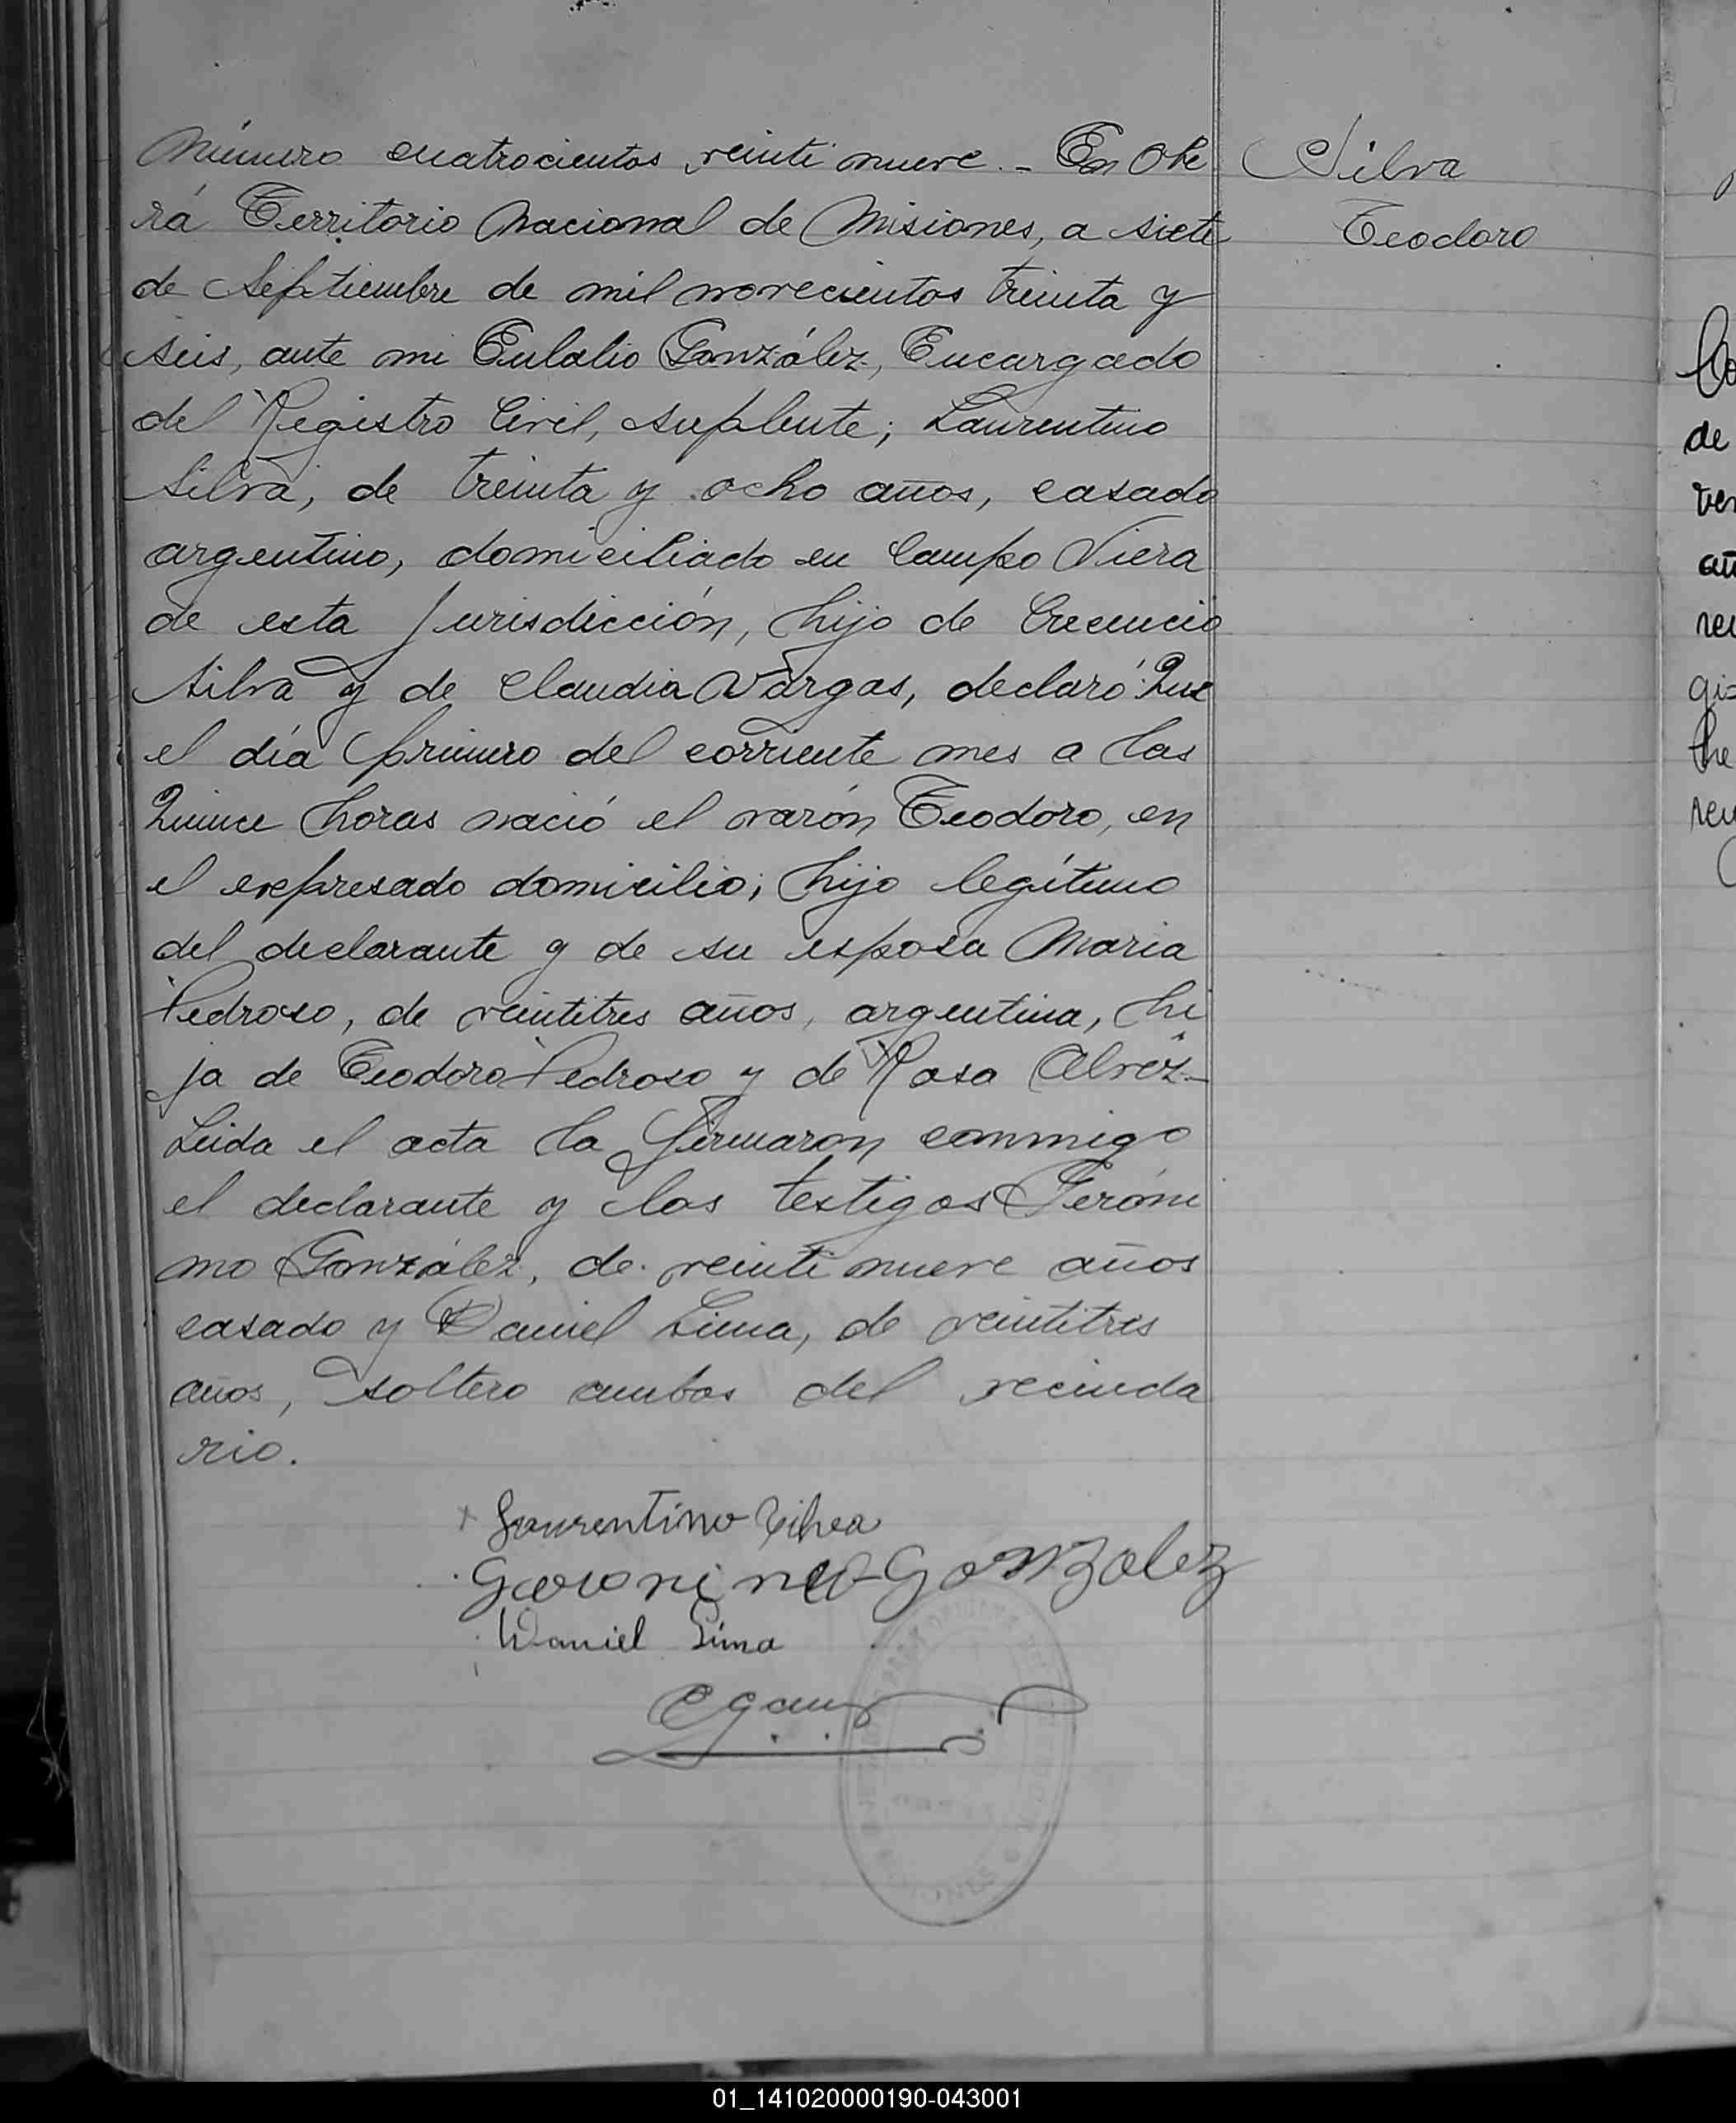 Número cuatrocientos veinti nueve. - En Obe
rá Territorio Nacional de Misiones, a siete
de Septiembre de mil novecientos treinta y
seis, ante mi Eulalio González, Encargado
del Registro Civil, suplente; Laurentino
Silva, de treinta y ocho años, casado
argentino, domiciliado en Campo Viera
de esta jurisdicción, hijo de Crecencio
Silva y de Claudia Vargas, declaró: Que
el día primero del corriente mes a las
Quince horas nació el varón Teodoro, en
el expresado domicilio; hijo legítimo
del declarante y de su esposa Maria
Pedroso, de veintitres años, argentina, hi
ja de Teodoro Pedroso y de Rosa Alvez-
Leida el acta la firmaron conmigo
el declarante y los testigos Jeróni
mo González, de veinti nueve años
casado y Daniel Lima, de veintitres
años, soltero ambos del vecinda
rio.
Silva
Teodoro
Laurentino Silva
Geronimo Gonzalez
Daniel Lima
Co
de
ver
añ
rec
gis
he
rec
01_141020000190-043001